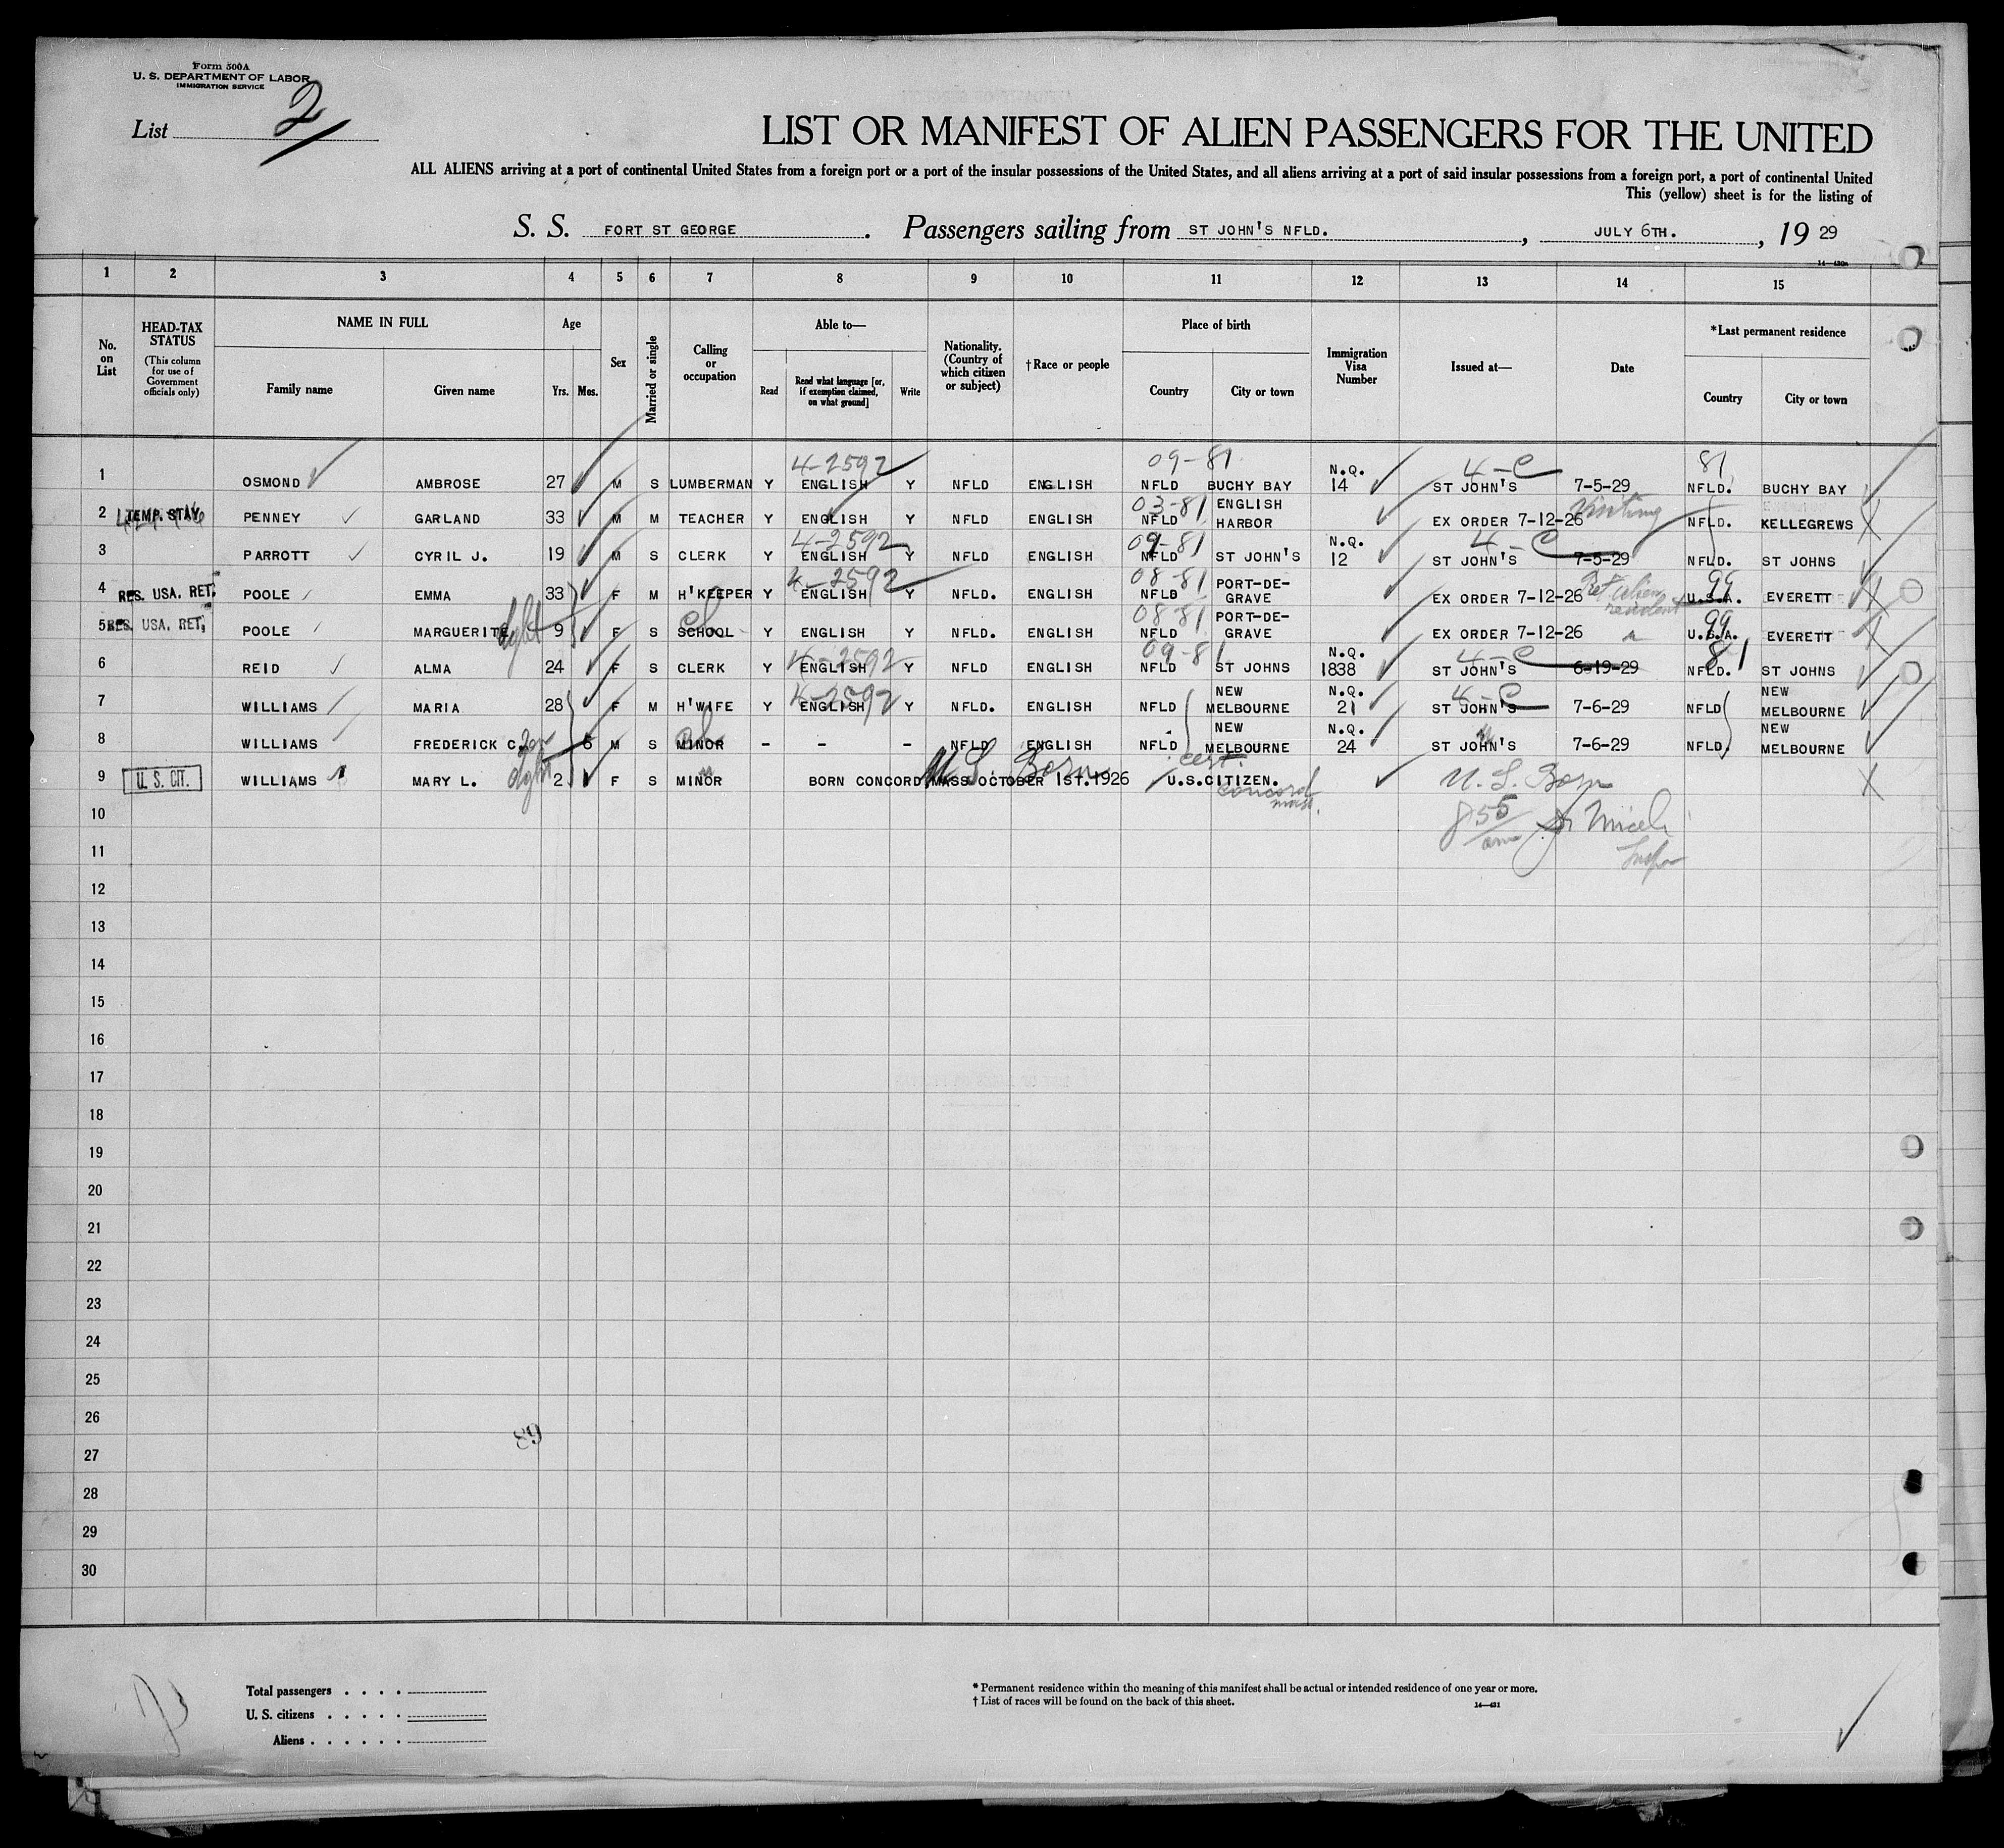 Form 500A
U. S. DEPARTMENT OF LABOR
IMMIGRATION SERVICE
List 2
LIST OR MANIFEST OF ALIEN PASSENGERS FOR THE UNITED
ALL ALIENS arriving at a port of continental United States from a foreign port or a port of the insular possessions of the United States, and all aliens arriving at a port of said insular possessions from a foreign port, a port of continental United
This (yellow) sheet is for the listing of
S. S. FORT ST GEORGE. Passengers sailing from ST JOHN'S NFLD., JULY 6TH., 19 29
14—430a
1 2 3 4 5 6 7 8 9 10 11 12 13 14 15
No. on List
HEAD-TAX STATUS
(This column for use of Government officials only)
NAME IN FULL
Family name Given name
Age
Yrs. Mos.
Sex
Married or single
Calling or occupation
Able to—
Read
Read what language [or, if exemption claimed, on what ground]
Write
Nationality. (Country of which citizen or subject)
†Race or people
Place of birth
Country City or town
Immigration Visa Number
Issued at—
Date
*Last permanent residence
Country City or town
4-2592 09-81 4-C 81
1 OSMOND AMBROSE 27 M S LUMBERMAN Y ENGLISH Y NFLD ENGLISH NFLD BUCHY BAY N.Q. 14 ST JOHN'S 7-5-29 NFLD. BUCHY BAY
03-81 Visiting
2 TEMP. STAY PENNEY GARLAND 33 M M TEACHER Y ENGLISH Y NFLD ENGLISH NFLD ENGLISH HARBOR EX ORDER 7-12-26 NFLD. KELLEGREWS
4-2592 09-81 4-C
3 PARROTT CYRIL J. 19 M S CLERK Y ENGLISH Y NFLD ENGLISH NFLD ST JOHN'S N.Q. 12 ST JOHN'S 7-5-29 NFLD. ST JOHNS
4-2592 08-81 Ret alien resident 99
4 RES. USA. RET. POOLE EMMA 33 F M H'KEEPER Y ENGLISH Y NFLD. ENGLISH NFLD PORT-DE-GRAVE EX ORDER 7-12-26 U.S.A. EVERETT
dght ch 08-81 99
5 RES. USA. RET. POOLE MARGUERITE 9 F S SCHOOL Y ENGLISH Y NFLD. ENGLISH NFLD PORT-DE-GRAVE EX ORDER 7-12-26 U.S.A. EVERETT
4-2592 09-81 4-C 81
6 REID ALMA 24 F S CLERK Y ENGLISH Y NFLD ENGLISH NFLD ST JOHNS N.Q. 1838 ST JOHN'S 6-19-29 NFLD. ST JOHNS
4-2592 4-C
7 WILLIAMS MARIA 28 F M H'WIFE Y ENGLISH Y NFLD. ENGLISH NFLD NEW MELBOURNE N.Q. 21 ST JOHN'S 7-6-29 NFLD NEW MELBOURNE
son ch
8 WILLIAMS FREDERICK C. 5 M S MINOR - - - NFLD ENGLISH NFLD NEW MELBOURNE N.Q. 24 ST JOHN'S 7-6-29 NFLD. NEW MELBOURNE
dght U.S. Born cert. U. S. Born
9 U. S. CIT. WILLIAMS MARY L. 2 F S MINOR BORN CONCORD MASS OCTOBER 1ST.1926 U.S.CITIZEN.
Concord mass.
10
855 am
Insp
11
12
13
14
15
16
17
18
19
20
21
22
23
24
25
26
89
27
28
29
30
Total passengers . . . .
U. S. citizens . . . . .
Aliens . . . . . .
* Permanent residence within the meaning of this manifest shall be actual or intended residence of one year or more.
† List of races will be found on the back of this sheet.
14—431